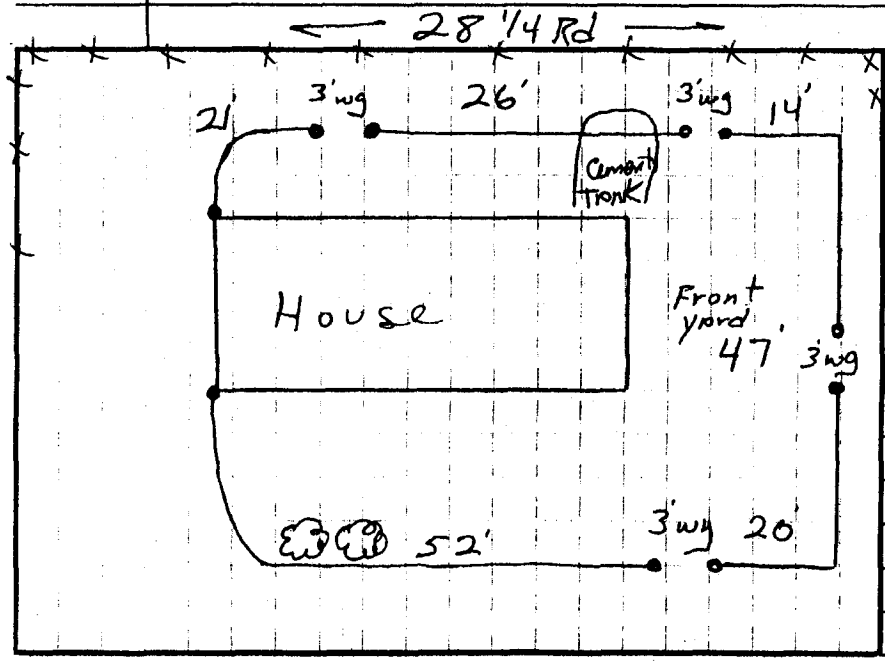 28 1/4 Rd
21'
3'wg
26'
3'wg
14'
Cement
Tronk
House
Front
yord
47'
3'wg
52'
3'wg
20'